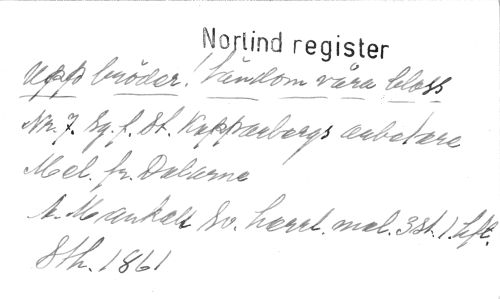 Norlind register
Upp bröder! Tändom våra bloss
Nr. 7. Sg. f. St. Kopparbergs arbetare
Mel. fr. Dalarne
A. Mankell Sv. harm. mel. 3 st. 1. hft.
Sth. 1861